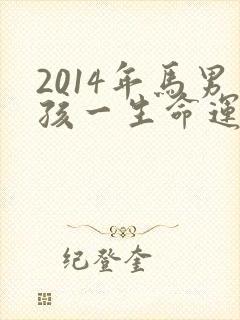 2014年馬男
孩一生命運
紀登奎